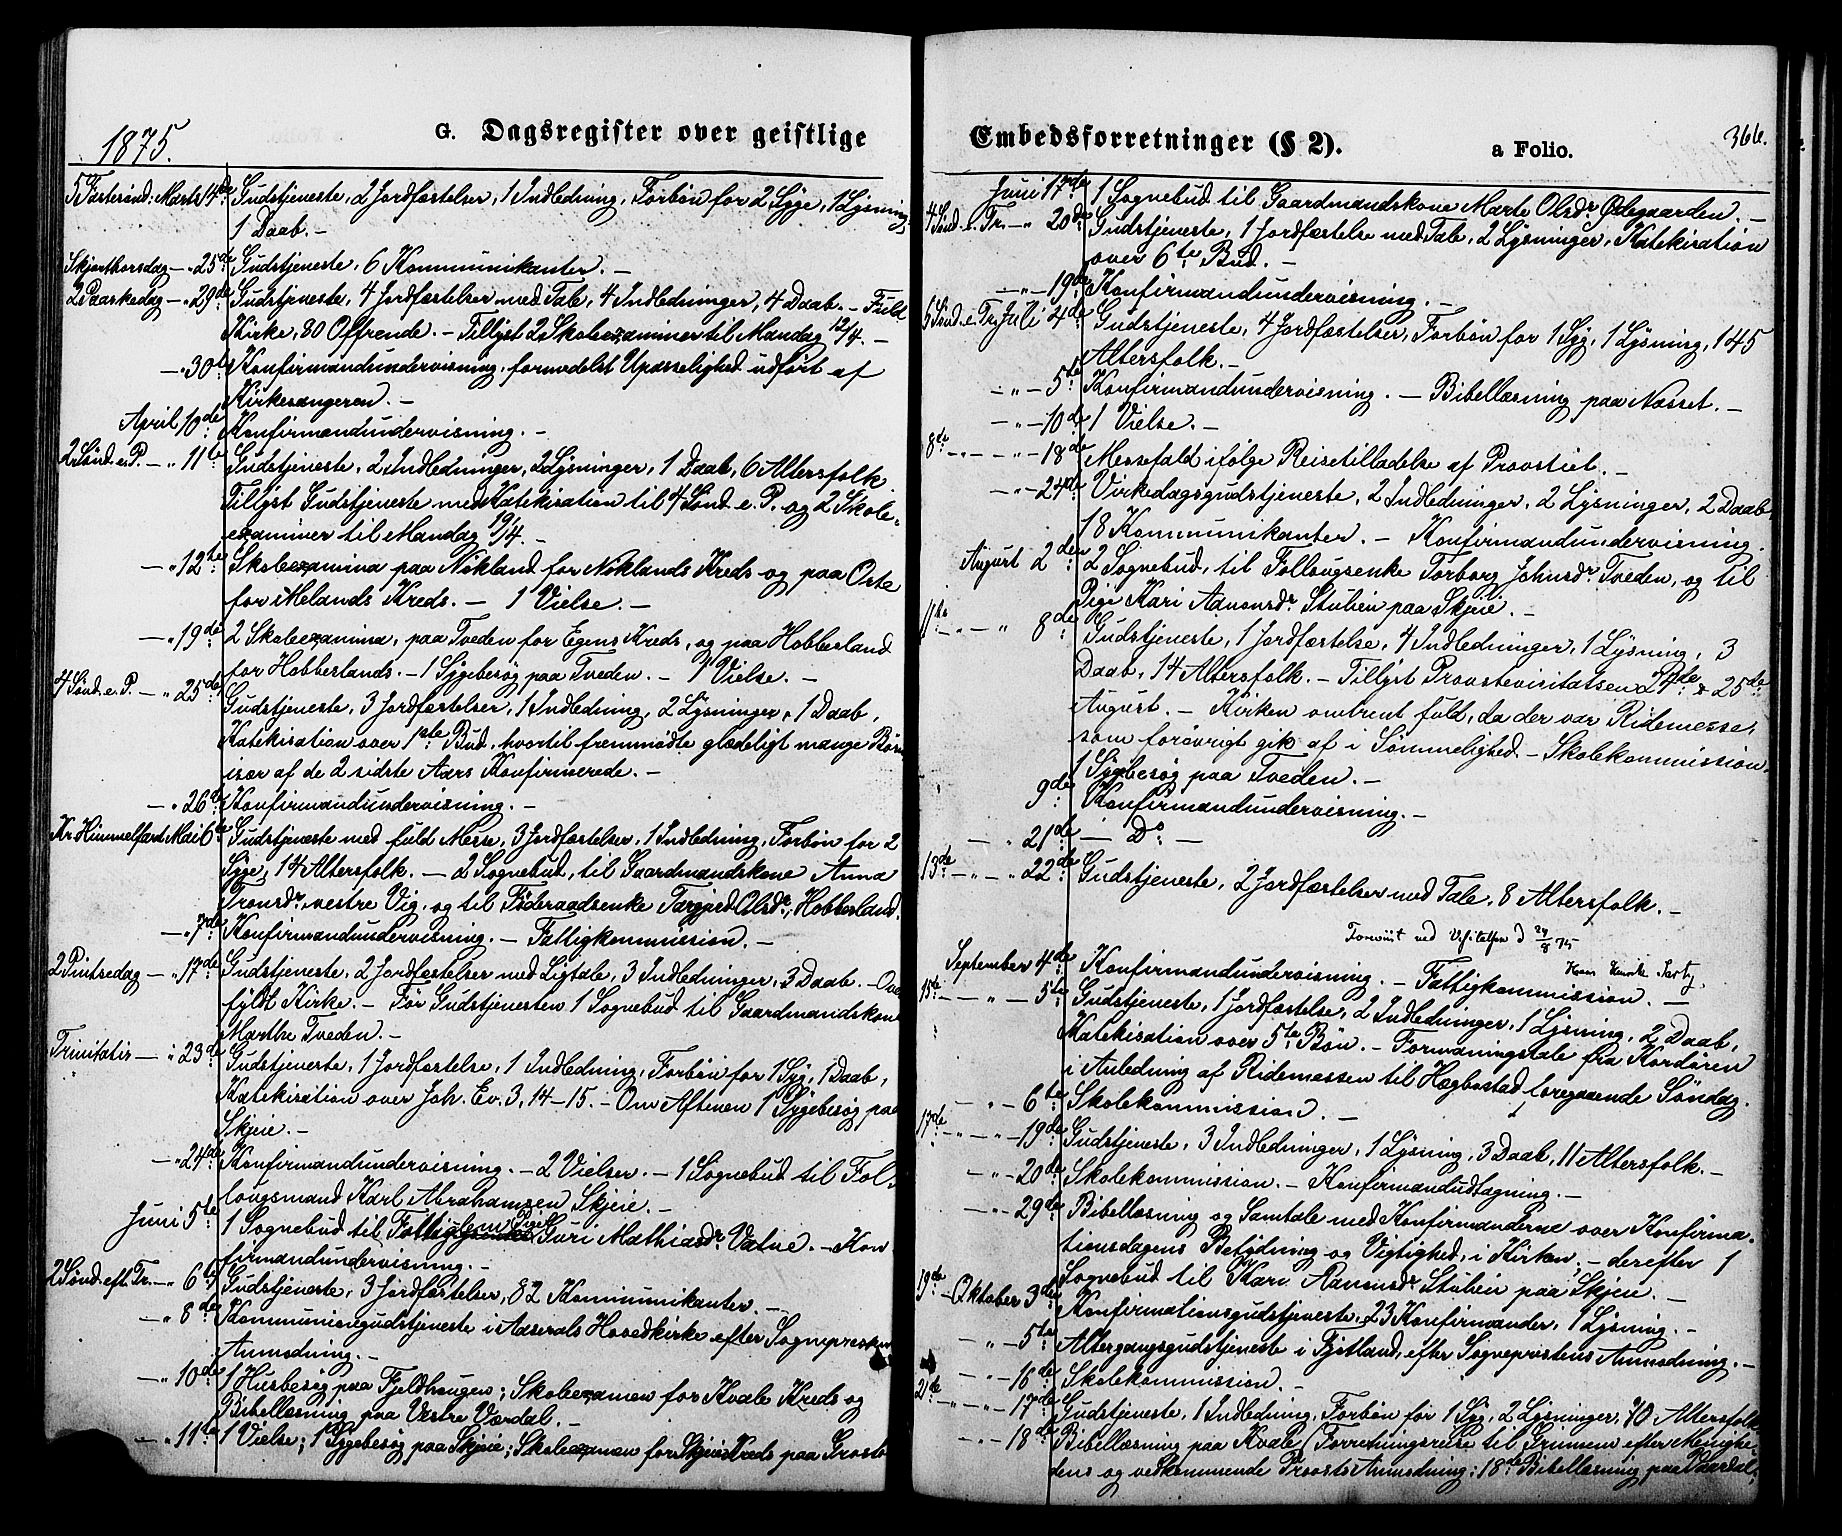 1875.
G. Dagsregister over geistlige
5 Fastesønd: Marts 14de Gudstjeneste, 2 Jordfæstelser, 1 Indledning, Forbøn for 2 Syge, 1 Lysning,
1 Daab. –
Skjærthorsdag – " 25de Gudstjeneste, 6 Kommunikanter. –
2 Paaskedag – " 29de Gudstjeneste, 4 Jordfæstelser med Tale, 4 Indledninger, 4 Daab. – Fuld
Kirke, 80 Offrende. – Tillyst 2 Skoleexaminer til Mandag 12/4. –
– " 30te Konfirmandundervisning, formedelst Upasselighed udført af
Kirkesangeren. –
April 10de Konfirmandundervisning. –
2 Sønd. e. P. – " 11te Gudstjeneste, 2 Indledninger, 2 Lysninger, 1 Daab, 6 Altersfolk
Tillyst Gudstjeneste med Katekisation til 4 Sønd. e. P. og 2 Skole-
examiner til Mandag 19/4. –
– " 12te Skoleexamina paa Nøkland for Nøklands Kreds og paa Oste
for Melands Kreds. – 1 Vielse. –
– " 19de 2 Skoleexamina, paa Tveden for Egens Kreds, og paa Hobbesland
for Hobbeslands. – 1 Sygebesøg paa Tveden. – 1 Vielse. –
4 Sønd. e. P. – " 25de Gudstjeneste, 3 Jordfæstelser, 1 Indledning, 2 Lysninger, 1 Daab,
Katekisation over 1ste Bud, hvortil fremmødte glædeligt mange Børn
især af de 2 sidste Aars Konfirmerede. –
– " 26de Konfirmandundervisning. –
Kr. Himmelfart Mai 6te Gudstjeneste med fuld Messe, 3 Jordfæstelser, 1 Indledning, Forbøn for 2
Syge, 14 Altersfolk. – 2 Sognebud, til Gaardmandskone Anna
Tronsdr. vestre Vig, og til Føderaadsenke Targjerd Olsdr. Hobbesland.
– " 7de Konfirmandundervisning. – Fattigkommission. –
2 Pintsedag – " 17de Gudstjeneste, 2 Jordfæstelser med Ligtale, 3 Indledninger, 3 Daab. – Over
fyldt Kirke. – Før Gudstjenesten 1 Sognebud til Gaardmandskone
Marthe Tveden. –
Trinitatis – " 23de Gudstjeneste, 1 Jordfæstelse, 1 Indledning, Forbøn for 1 Syg, 1 Daab,
Katekisation over Joh. Ev. 3, 14–15. – Om Aftenen 1 Sygebesøg paa
Skjeie. –
– " 24de Konfirmandundervisning. – 2 Vielser. – 1 Sognebud til Fol-
lougsmand Karl Abrahamsen Skjeie. –
Juni 5te 1 Sognebud til Guri Mathiasdr. Vatne. – Kon
firmandundervisning. –
2 Sønd. eft. Tr. – " 6te Gudstjeneste, 3 Jordfæstelser, 82 Kommunikanter. –
– " 8de Kommuniongudstjeneste i Aaserals Hovedkirke efter Sognepresten
Anmodning. –
– " 10de 1 Husbesøg paa Fjeldhaugen; Skoleexamen for Kvale Kreds og
Bibellæsning paa Vestre Værdal. –
– " 11te 1 Vielse; 1 Sygebesøg paa Skjeie; Skoleexamen for Skjeies Kreds paa
Embedsforretninger (§ 2).
a Folio.
366.
Juni 17de 1 Sognebud til Gaardmandskone Marte Olsdr. Ødegaarden. –
4 Sønd. e. Tr. – " 20de Gudstjeneste, 1 Jordfæstelse med Tale, 2 Lysninger, Katekisation
over 6te Bud. –
– " – 19de Konfirmandundervisning. –
6 Sønd. e. Tr. Juli 4de Gudstjeneste, 4 Jordfæstelser, Forbøn for 1 Syg, 1 Lysning, 145
Altersfolk. –
– " – 5te Konfirmandundervisning. – Bibellæsning paa Næsset. –
– " – 10de 1 Vielse. –
8de – " – 18de Messefald ifølge Reisetilladelse af Provstiet. –
– " – 24de Virkedagsgudstjeneste, 2 Indledninger, 2 Lysninger, 2 Daab,
18 Kommunikanter. – Konfirmandundervisning.
August 2den 2 Sognebud, til Follougsenke Torborg Johnsdr. Tveden, og til
Pige Kari Aanonsdr. Stulien paa Skjeie. –
11te – " 8de Gudstjeneste, 1 Jordfæstelse, 4 Indledninger, 1 Lysning, 3
Daab, 14 Altersfolk. – Tillyst Provstevisitatsen 24de & 25de
August. – Kirken omtrent fuld, da der var Ridemesse,
som forøvrigt gik af i Sømmelighed. – Skolekommission.
1 Sygebesøg paa Tveden. –
9de Konfirmandundervisning. –
– " 21de – Do –
13de – " – " 22de Gudstjeneste, 2 Jordfæstelser med Tale, 8 Altersfolk. –
Foreviist ved Visitatsen d 24/8 75
September 4de Konfirmandundervisning. – Fattigkommission. –
15de – " – 5te Gudstjeneste, 1 Jordfæstelse, 2 Indledninger, 1 Lysning, 2 Daab,
Katekisation over 5te Bøn. – Formaningstale fra Kordøren
i Anledning af Ridemessen til Hægbostad foregaaende Søndag.
– " – 6te Skolekommission. –
17de – " – " – 19de Gudstjeneste, 3 Indledninger, 1 Lysning, 3 Daab, 11 Altersfolk. –
– " – 20de Skolekommission. – Konfirmandudtagning. –
– " – 29de Bibellæsning og Samtale med Konfirmanderne over Konfirma-
tionsdagens Betydning og Vigtighed, i Kirken; – derefter 1
Sognebud til Kari Aanonsdr. Stulien paa Skjeie. –
19de – Oktober 3die Konfirmationsgudstjeneste, 23 Konfirmander, 1 Lysning. –
– " – 5te Altergangsgudstjeneste i Fjotland, efter Sogneprestens Anmodning. –
– " – 16de Skolekommission. –
21de – " – " – 17de Gudstjeneste, 1 Indledning, Forbøn for 1 Syg, 2 Lysninger, 70 Altersfolk
– " – 18de Bibellæsning paa Kvale (Forretningsreise til Grimsem efter Menighe-
dens og vedkommende Provsts Anmodning: 18de Bibellæsning paa Værdal,